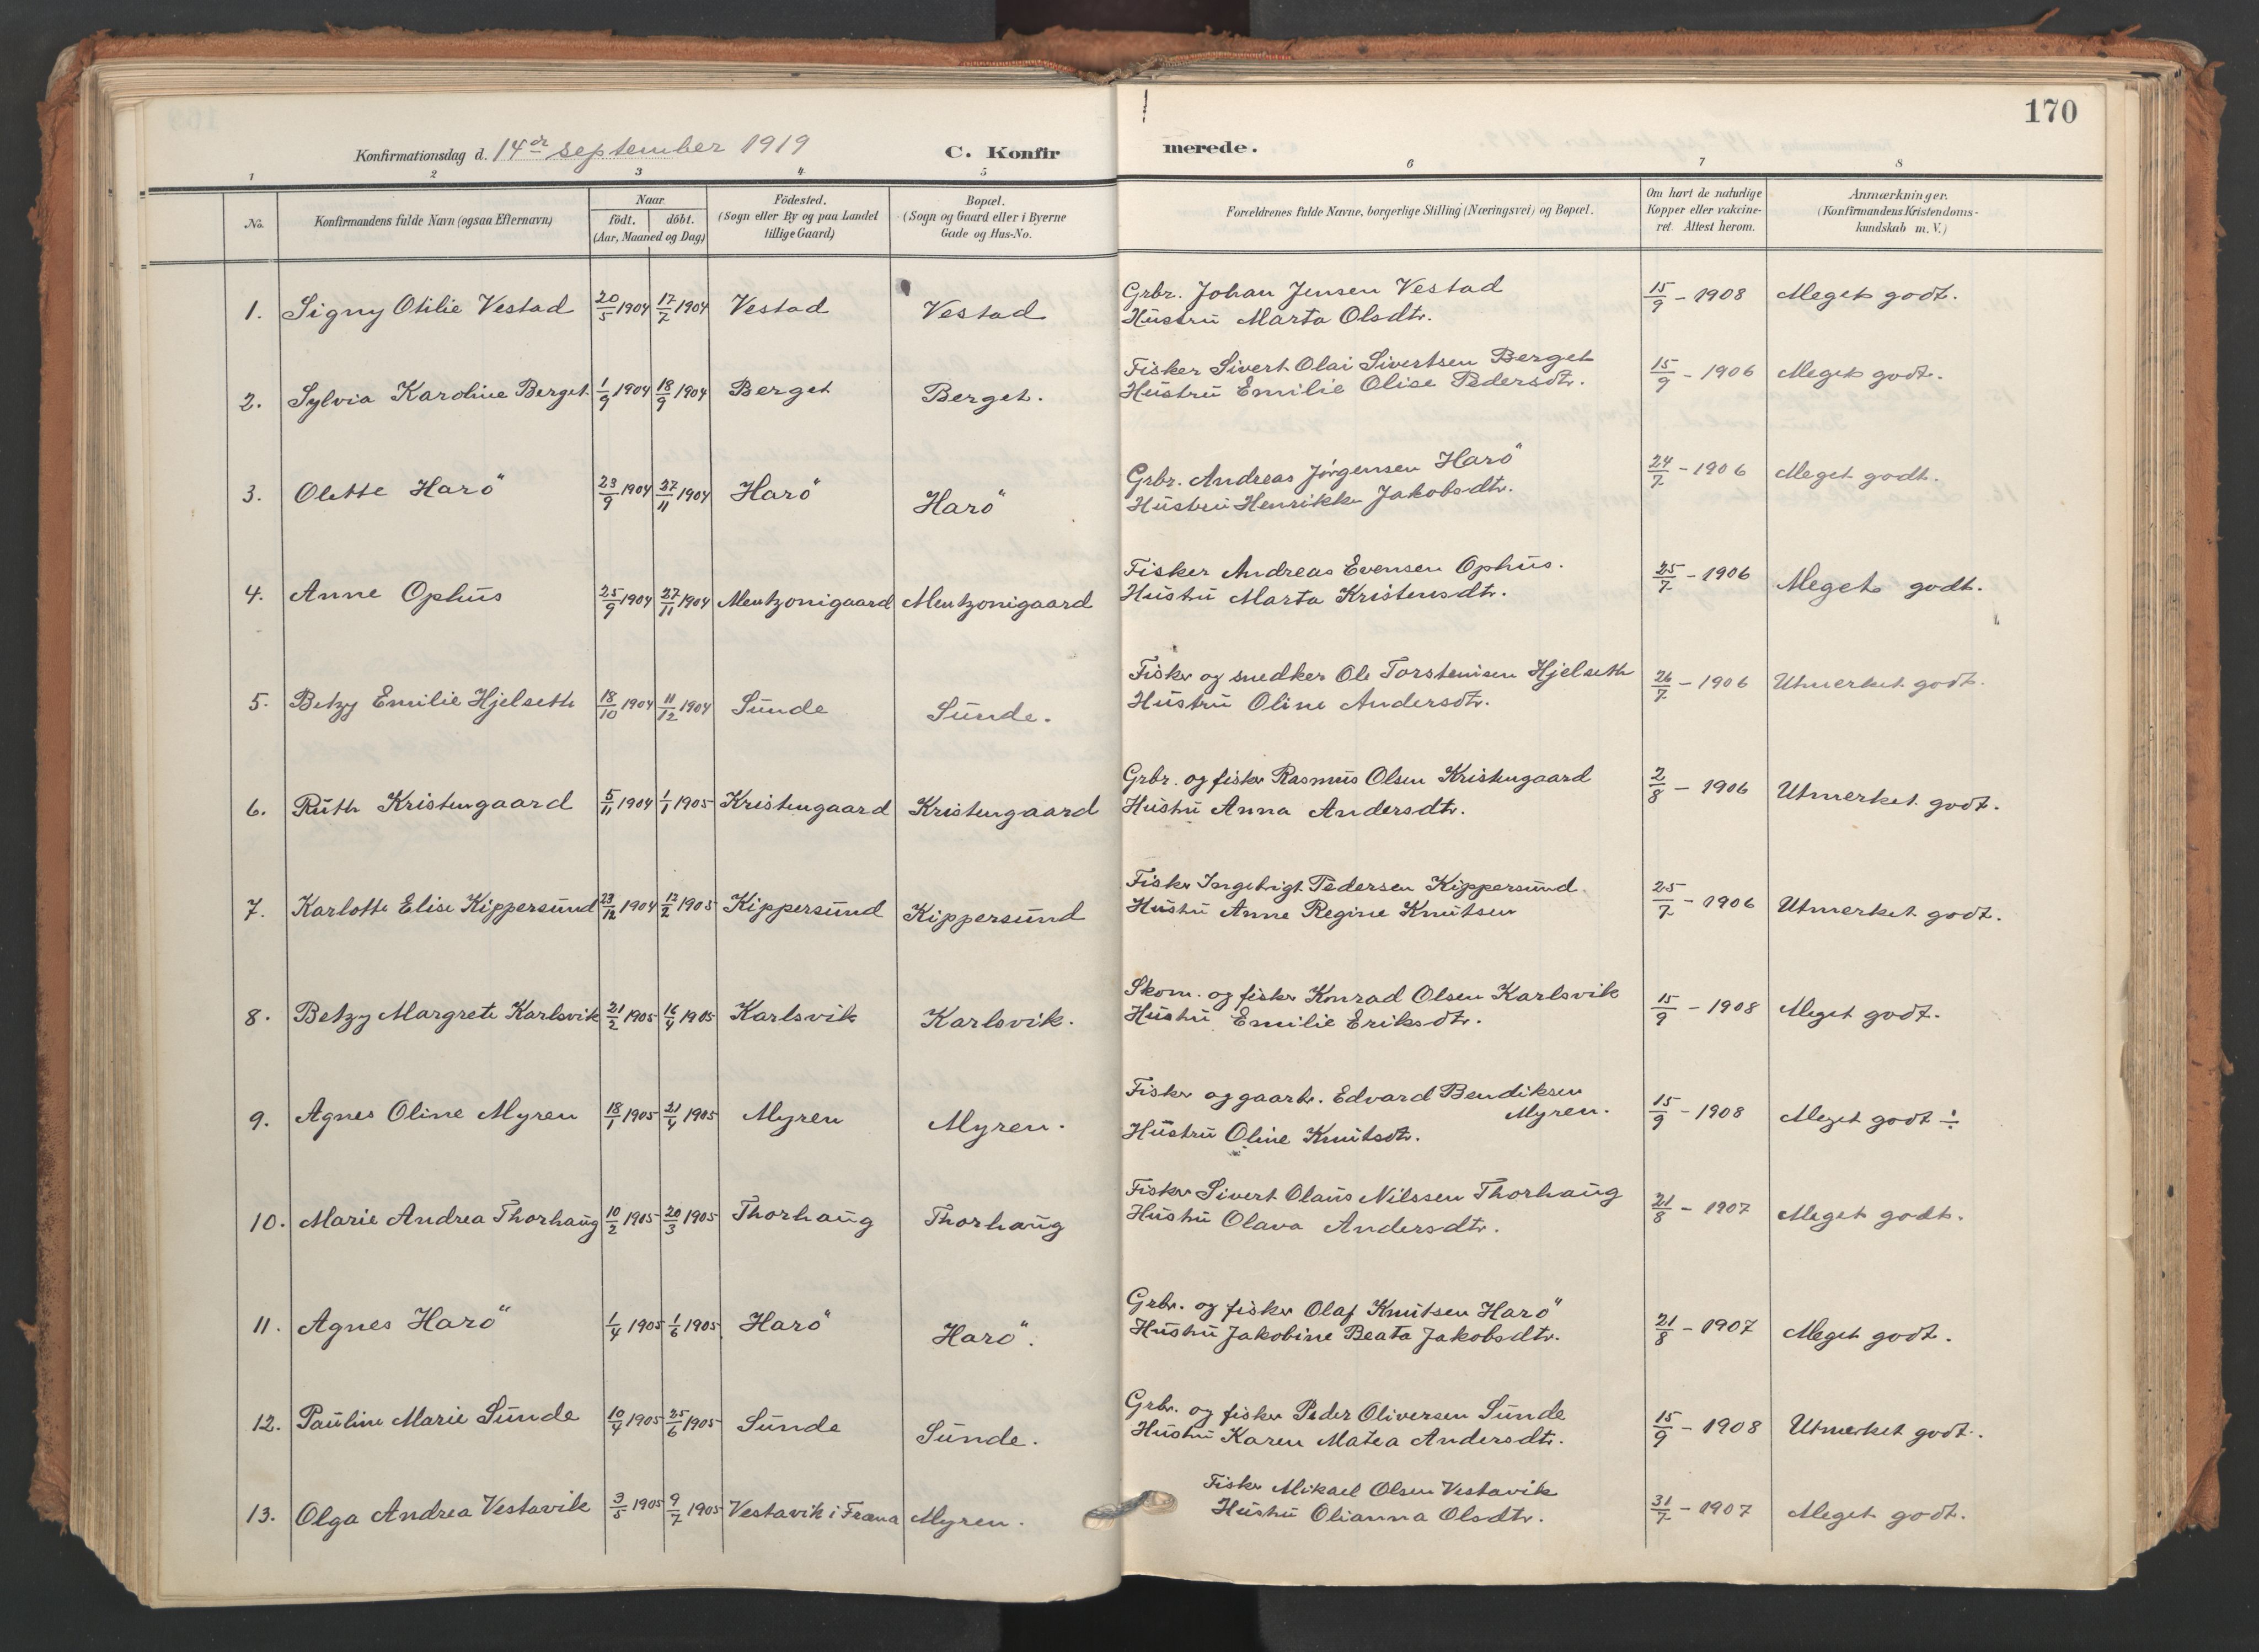 170
Konfirmationsdag d. 14de september 1919 C. Konfirmerede.
1 2 3 4 5 6 7 8
No. Konfirmandens fulde Navn (ogsaa Efternavn) Naar födt. döbt. (Aar, Maaned og Dag) Födested. (Sogn eller By og paa Landet tillige Gaard) Bopæl. (Sogn og Gaard eller i Byerne Gade og Hus-No. Forældrenes fulde Navne, borgerlige Stilling (Næringsvei) og Bopæl. Om havt de naturlige Kopper eller vakcineret. Attest herom. Anmærkninger. (Konfirmandens Kristendomskundskab m. V.)
1. Signy Otilie Vestad 20/5 1904 17/7 1904 Vestad Vestad Grbr. Johan Jensen Vestad 15/9 - 1908 Meget godt.
Hustru Marta Olsdtr.
2. Sylvia Karoline Berget 1/9 1904 18/9 1904 Berget Berget. Fisker Sivert Olai Sivertsen Berget 15/9 - 1906 Meget godt.
Hustru Emilie Olise Pedersdtr.
3. Olette Harö 23/9 1904 27/11 1904 Harö Harö Grbr. Andreas Jørgensen Harö 24/7 - 1906 Meget godt.
Hustru Henrikke Jakobsdtr.
4. Anne Ophus 25/9 1904 27/11 1904 Mentzonigaard Mentzonigaard Fisker Andreas Evensen Ophus. 25/7 - 1906 Meget godt.
Hustru Marta Kristensdtr.
5. Betzy Emilie Hjelseth 18/10 1904 11/12 1904 Sunde Sunde. Fisker og snedker Ole Torstensen Hjelseth 26/7 - 1906 Utmerket godt.
Hustru Oline Andersdtr.
6. Ruth Kristengaard 5/11 1904 1/1 1905 Kristengaard Kristengaard Grbr. og fisker Rasmus Olsen Kristengaard 2/8 - 1906 Utmerket godt.
Hustru Anna Andersdtr.
7. Karlotte Elise Kippersund 23/12 1904 12/2 1905 Kippersund Kippersund Fisker Ingebrigt Pedersen Kippersund. 25/7 - 1906 Utmerket godt.
Hustru Anne Regine Knutsen
8. Betzy Margrete Karlsvik 21/2 1905 16/4 1905 Karlsvik Karlsvik. Skom. og fisker Konrad Olsen Karlsvik 15/9 - 1908 Meget godt.
Hustru Emilie Eriksdtr.
9. Agnes Oline Myren 18/1 1905 21/4 1905 Myren Myren. Fisker og gaarbr. Edvard Bendiksen 15/9 - 1908 Meget godt ÷
Myren.
Hustru Oline Knutsdtr.
10. Marie Andrea Thorhaug 10/2 1905 20/3 1905 Thorhaug Thorhaug Fisker Sivert Olaus Nilssen Thorhaug 21/8 - 1907 Meget godt.
Hustru Olava Andersdtr.
11. Agnes Harö 1/4 1905 1/6 1905 Harö Harö. Grbr. og fisker Olaf Knutsen Harö 21/8 - 1907 Meget godt.
Hustru Jakobine Beata Jakobsdtr.
12. Pauline Marie Sunde 10/4 1905 25/6 1905 Sunde Sunde. Grbr. og fisker Peder Oliversen Sunde 15/9 - 1908 Utmerket godt.
Hustru Karen Matea Andersdtr.
13. Olga Andrea Vestavik 3/5 1905 9/7 1905 Vestavik i Fræna Myren. Fisker Mikael Olsen Vestavik 31/7 - 1907 Meget godt.
Hustru Olianna Olsdtr.